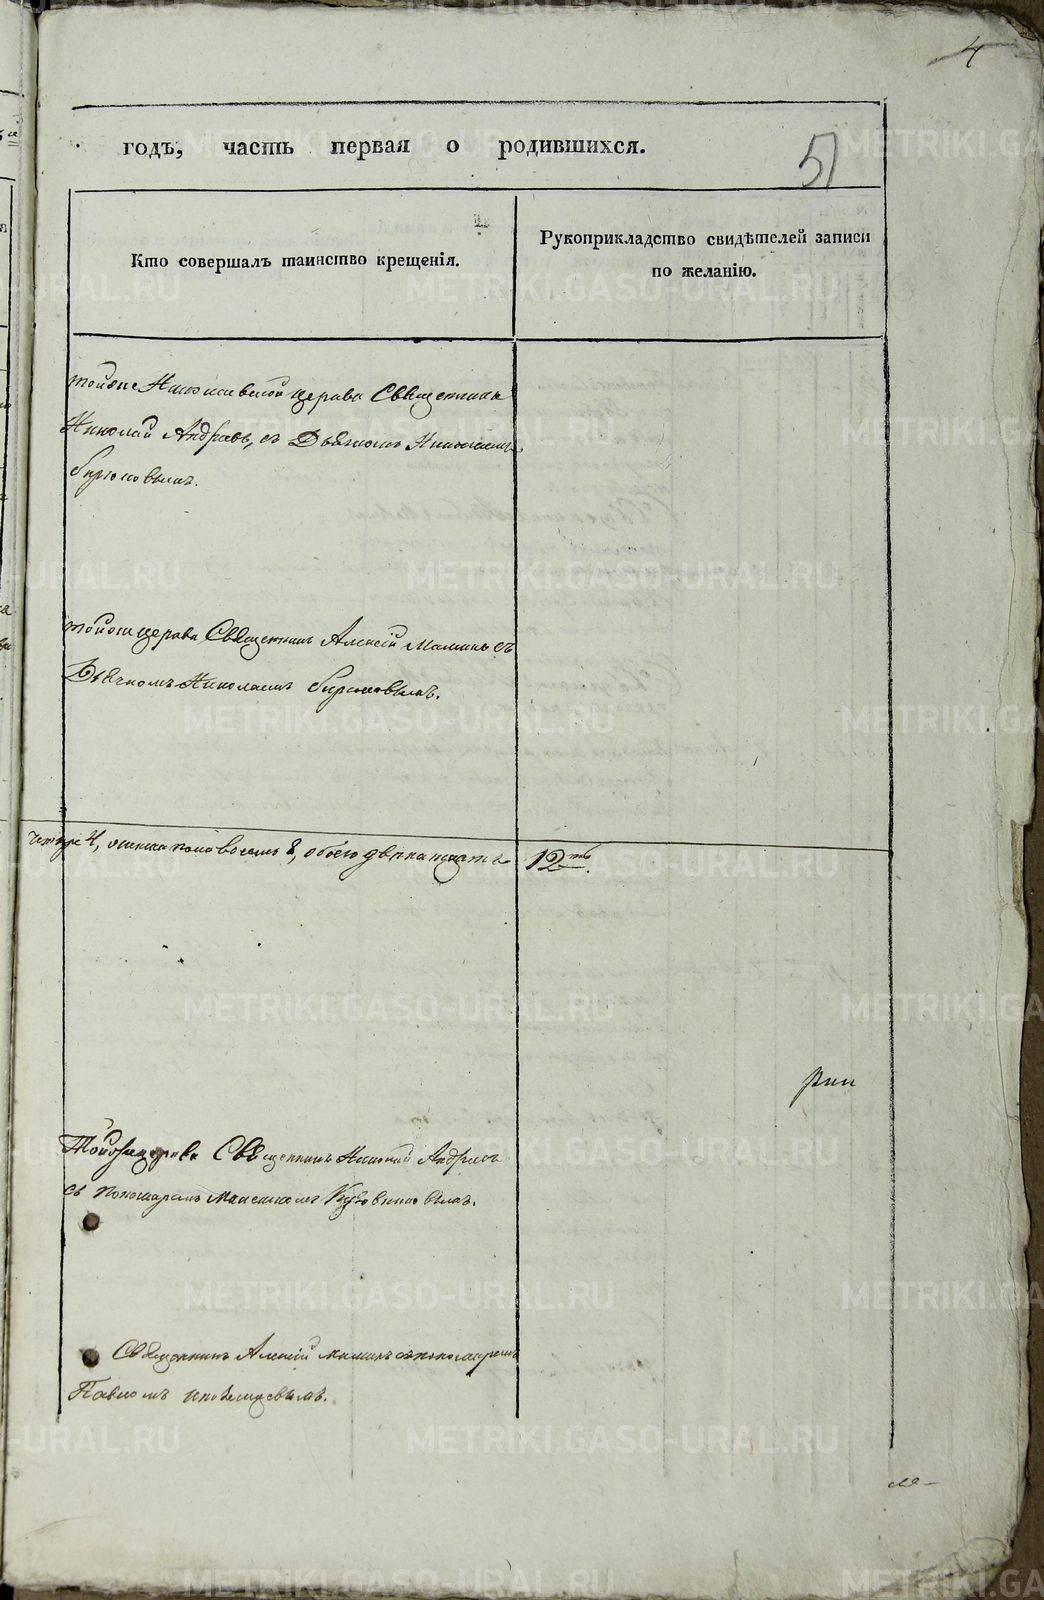 4
годъ, часть первая о родившихся.
51
Кто совершалъ таинство крещенія.
Рукоприкладство свидѣтелей записи
по желанію.
тойже церкви Священникъ
Николай Андреевъ, съ Дьячкомъ Николаемъ
Бирюковымъ.
тойже церкви Священникъ Алексій Малинъ съ
Дьячкомъ Николаемъ Бирюковымъ.
четыре 4, женска пола восемь 8, обоего двенатцать
12ть.
Тойже церкви Священникъ Николай Андреевъ
съ пономаремъ Максимомъ
Священникъ Алексій Малинъ съ пономаремъ
Павломъ
METRIKI.GASO-URAL.RU